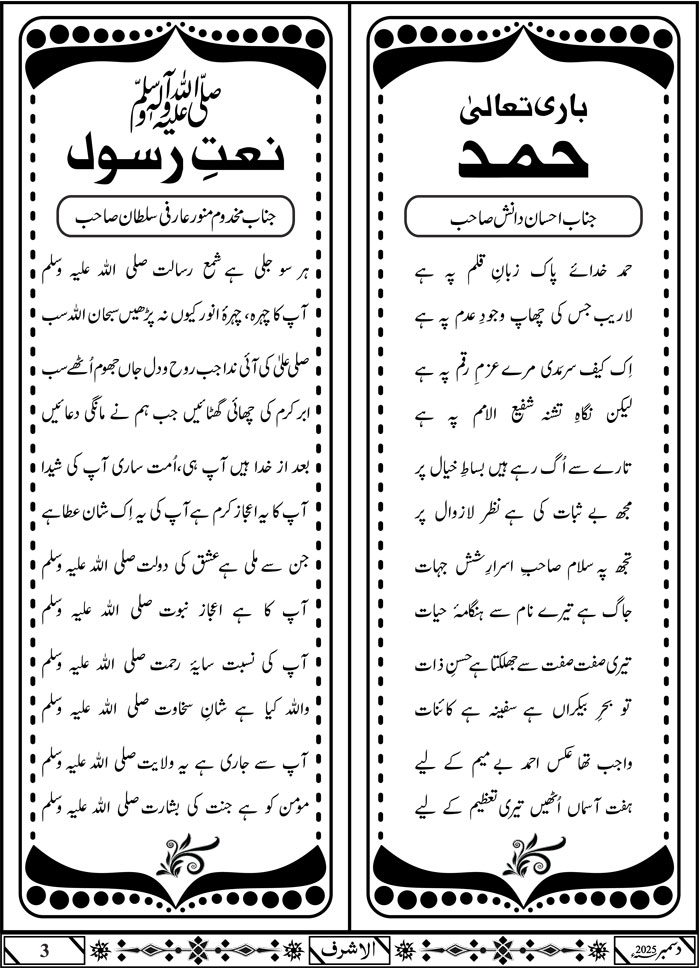 باری تعالیٰ
حمد
جناب احسان دانش صاحب
حمد خدائے پاک زبانِ قلم پہ ہے
لاریب جس کی چھاپ وجودِ عدم پہ ہے
اِک کیف سرمدی مرے عزمِ رقم پہ ہے
لیکن نگاہِ تشنہ شفیع الامم پہ ہے
تارے سے اُگ رہے ہیں بساطِ خیال پر
مجھ بے ثبات کی ہے نظر لازوال پر
تجھ پہ سلام صاحبِ اسرارِ شش جہات
جاگ ہے تیرے نام سے ہنگامۂ حیات
تیری صفت صفت سے جھلکتا ہے حسنِ ذات
تو بحرِ بیکراں ہے سفینہ ہے کائنات
واجب تھا عکس احمد بے میم کے لیے
ہفت آسماں اُٹھیں تیری تعظیم کے لیے
صلی اللہ علیہ وآلہ وسلم
نعتِ رسول
جناب مخدوم منور عارفی سلطان صاحب
ہر سو جلی ہے شمع رسالت صلی اللہ علیہ وسلم
آپ کا چہرہ، چہرۂ انور کیوں نہ پڑھیں سبحان اللہ سب
صلی علیٰ کی آئی ندا جب روح و دل جاں جھوم اُٹھے سب
ابر کرم کی چھائی گھٹائیں جب ہم نے مانگی دعائیں
بعد از خدا ہیں آپ ہی، اُمت ساری آپ کی شیدا
آپ کا یہ اعجاز کرم ہے آپ کی یہ اِک شان عطا ہے
جن سے ملی ہے عشق کی دولت صلی اللہ علیہ وسلم
آپ کا ہے اعجاز نبوت صلی اللہ علیہ وسلم
آپ کی نسبت سایۂ رحمت صلی اللہ علیہ وسلم
واللہ کیا ہے شانِ سخاوت صلی اللہ علیہ وسلم
آپ سے جاری ہے یہ ولایت صلی اللہ علیہ وسلم
مؤمن کو ہے جنت کی بشارت صلی اللہ علیہ وسلم
دسمبر 2025ء
الاشرف
3